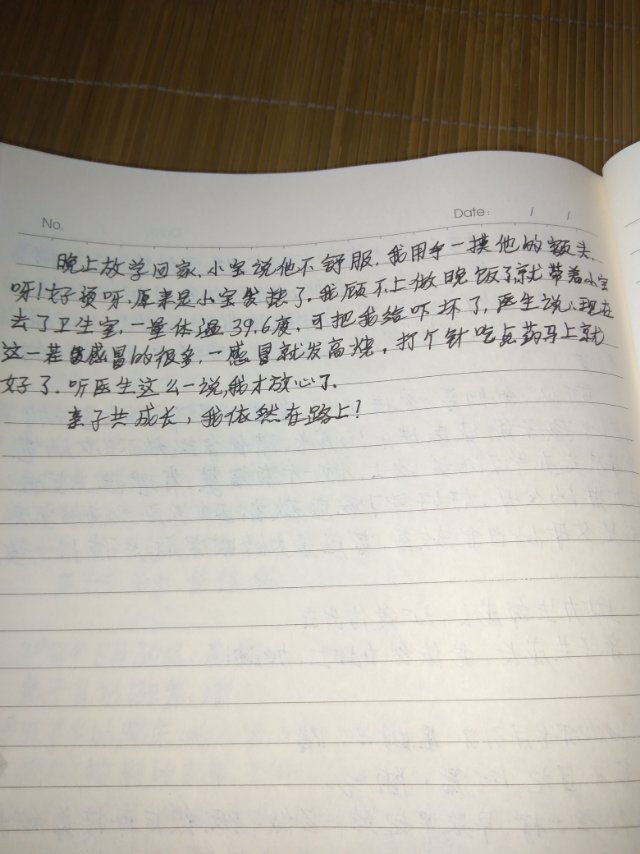 No.
Date: / /
晚上放学回家,小宝说他不舒服.我用手一摸他的额头.
呀!好烫呀,原来是小宝发烧了.我顾不上做晚饭了,就带着小宝
去了卫生室,一量体温39.6度.可把我给吓坏了,医生说:现在
这一差感冒的很多,一感冒就发高烧,打个针吃点药马上就
好了.听医生这么一说,我才放心了.
亲子共成长,我依然在路上!